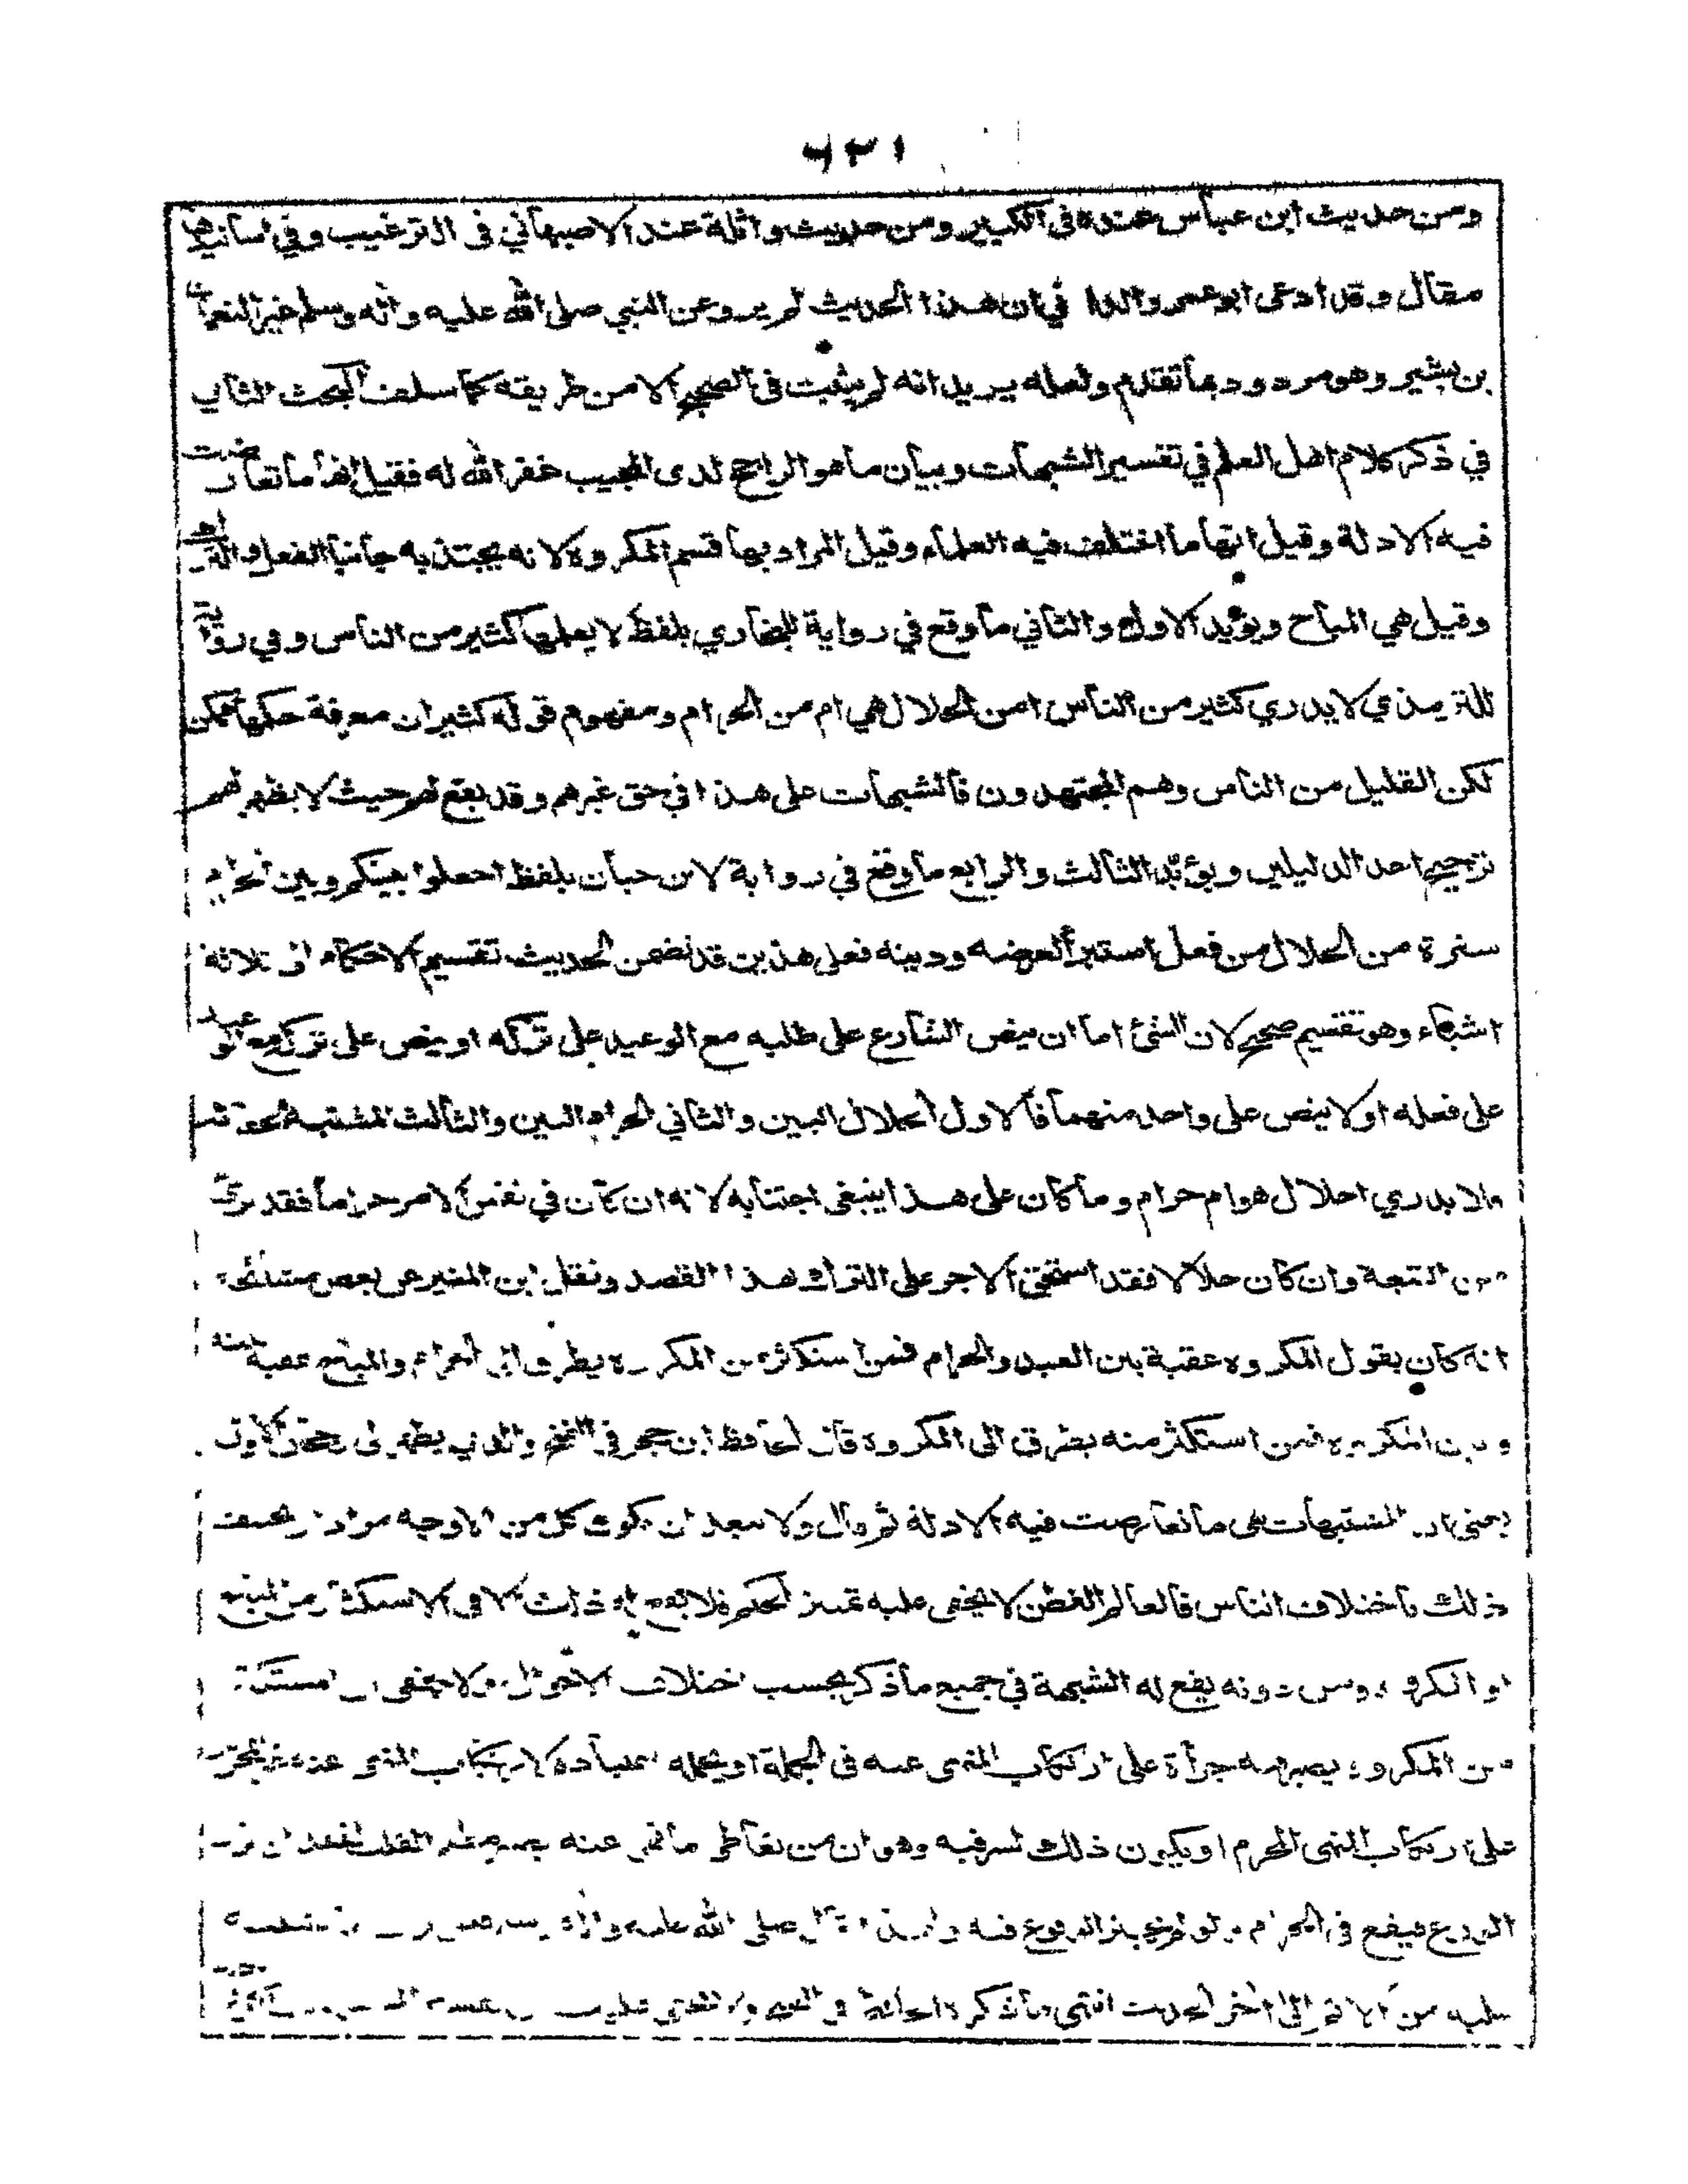 ٦٢١
ومن حديث ابن عباس عنده في الكبير ومن حديث واثلة عند الاصبهاني في الترغيب وفي اسانيدها
مقال وقد ادعى ابو عمرو الدا ني ان هذا الحديث لم يرو عن النبي صلى الله عليه واله وسلم غير النعمان
بن بشير وهو مردود بما تقدم ولعله يريد انه لم يثبت في الصحيح الا من طريقه كما سلف البحث الثاني
في ذكر كلام اهل العلم في تفسير الشبهات وبيان ما هو الراجح لدى المجيب غفر الله له فقيل انها ما تعارضت
فيه الادلة وقيل انها ما اختلف فيه العلماء وقيل المراد بها قسم المكروه لانه يجتذبه جانبا الفعل والترك
وقيل هي المباح ويؤيد الاول والثاني ما وقع في رواية للبخاري بلفظ لا يعلمها كثير من الناس وفي رواية
للترمذي لا يدري كثير من الناس امن الحلال هي ام من الحرام ومفهوم قوله كثير ان معرفة حكمها ممكن
لكن القليل من الناس وهم المجتهدون فالشبهات على هذا في حق غيرهم وقد يقع لهم حيث لا يظهر لهم
ترجيح احد الدليلين ويؤيد الثالث والرابع ما وقع في رواية لابن حبان بلفظ اجعلوا بينكم وبين الحرام
سترة من الحلال من فعل استبرأ لعرضه ودينه فعلى هذين قد تضمن الحديث تقسيم الاحكام الى ثلاثة
اشياء وهو تقسيم صحيح لان الشئ اما ان ينص الشارع على طلبه مع الوعيد على تركه او ينص على تركه مع الوعيد
على فعله او لا ينص على واحد منهما فالاول الحلال البين والثاني الحرام البين والثالث المشتبه لخفائه
ولا يدري احلال هو ام حرام وما كان على هذا ينبغي اجتنابه لانه ان كان في نفس الامر حراما فقد برئ
من التبعة وان كان حلالا فقد استحق الاجر على الترك هذا القصد ونقل ابن المنير عن بعض مشائخه
انه كان يقول المكروه عقبة بين العبد والحرام فمن استكثر من المكروه يطرق الى الحرام والمباح عقبة بينه
وبين المكروه فمن استكثر منه يطرق الى المكروه قال الحافظ ابن حجر في الفتح والذي يظهر لي رجحان الاول
يعني ان المشتبهات هي ما تعارضت فيه الادلة ثم قال ولا يبعد ان يكون كل من الاوجه مرادا ويختلف
ذلك باختلاف الناس فالعالم الفطن لا يخفى عليه تمييز الحكم فلا يقع له ذلك الا في الاستكثار من المباح
او المكروه ومن دونه يقع له الشبهة في جميع ما ذكر بحسب اختلاف الاحوال ولا يخفى ان المستكثر
من المكروه يصير فيه جرأة على ارتكاب المنهي عنه في الجملة او يحمله اعتياده لارتكاب المنهي عنه غير المحرم
على ارتكاب المنهي المحرم او يكون ذلك لسر فيه وهو ان من تعاطى ما نهي عنه يصير مظلم القلب لفقدان نور
الورع فيقع في الحرام ولو لم يختر الوقوع فيه ولهذا قال صلى الله عليه واله
عليه من الاثم الى اخر الحديث انتهى ما ذكره الحافظ في الفتح